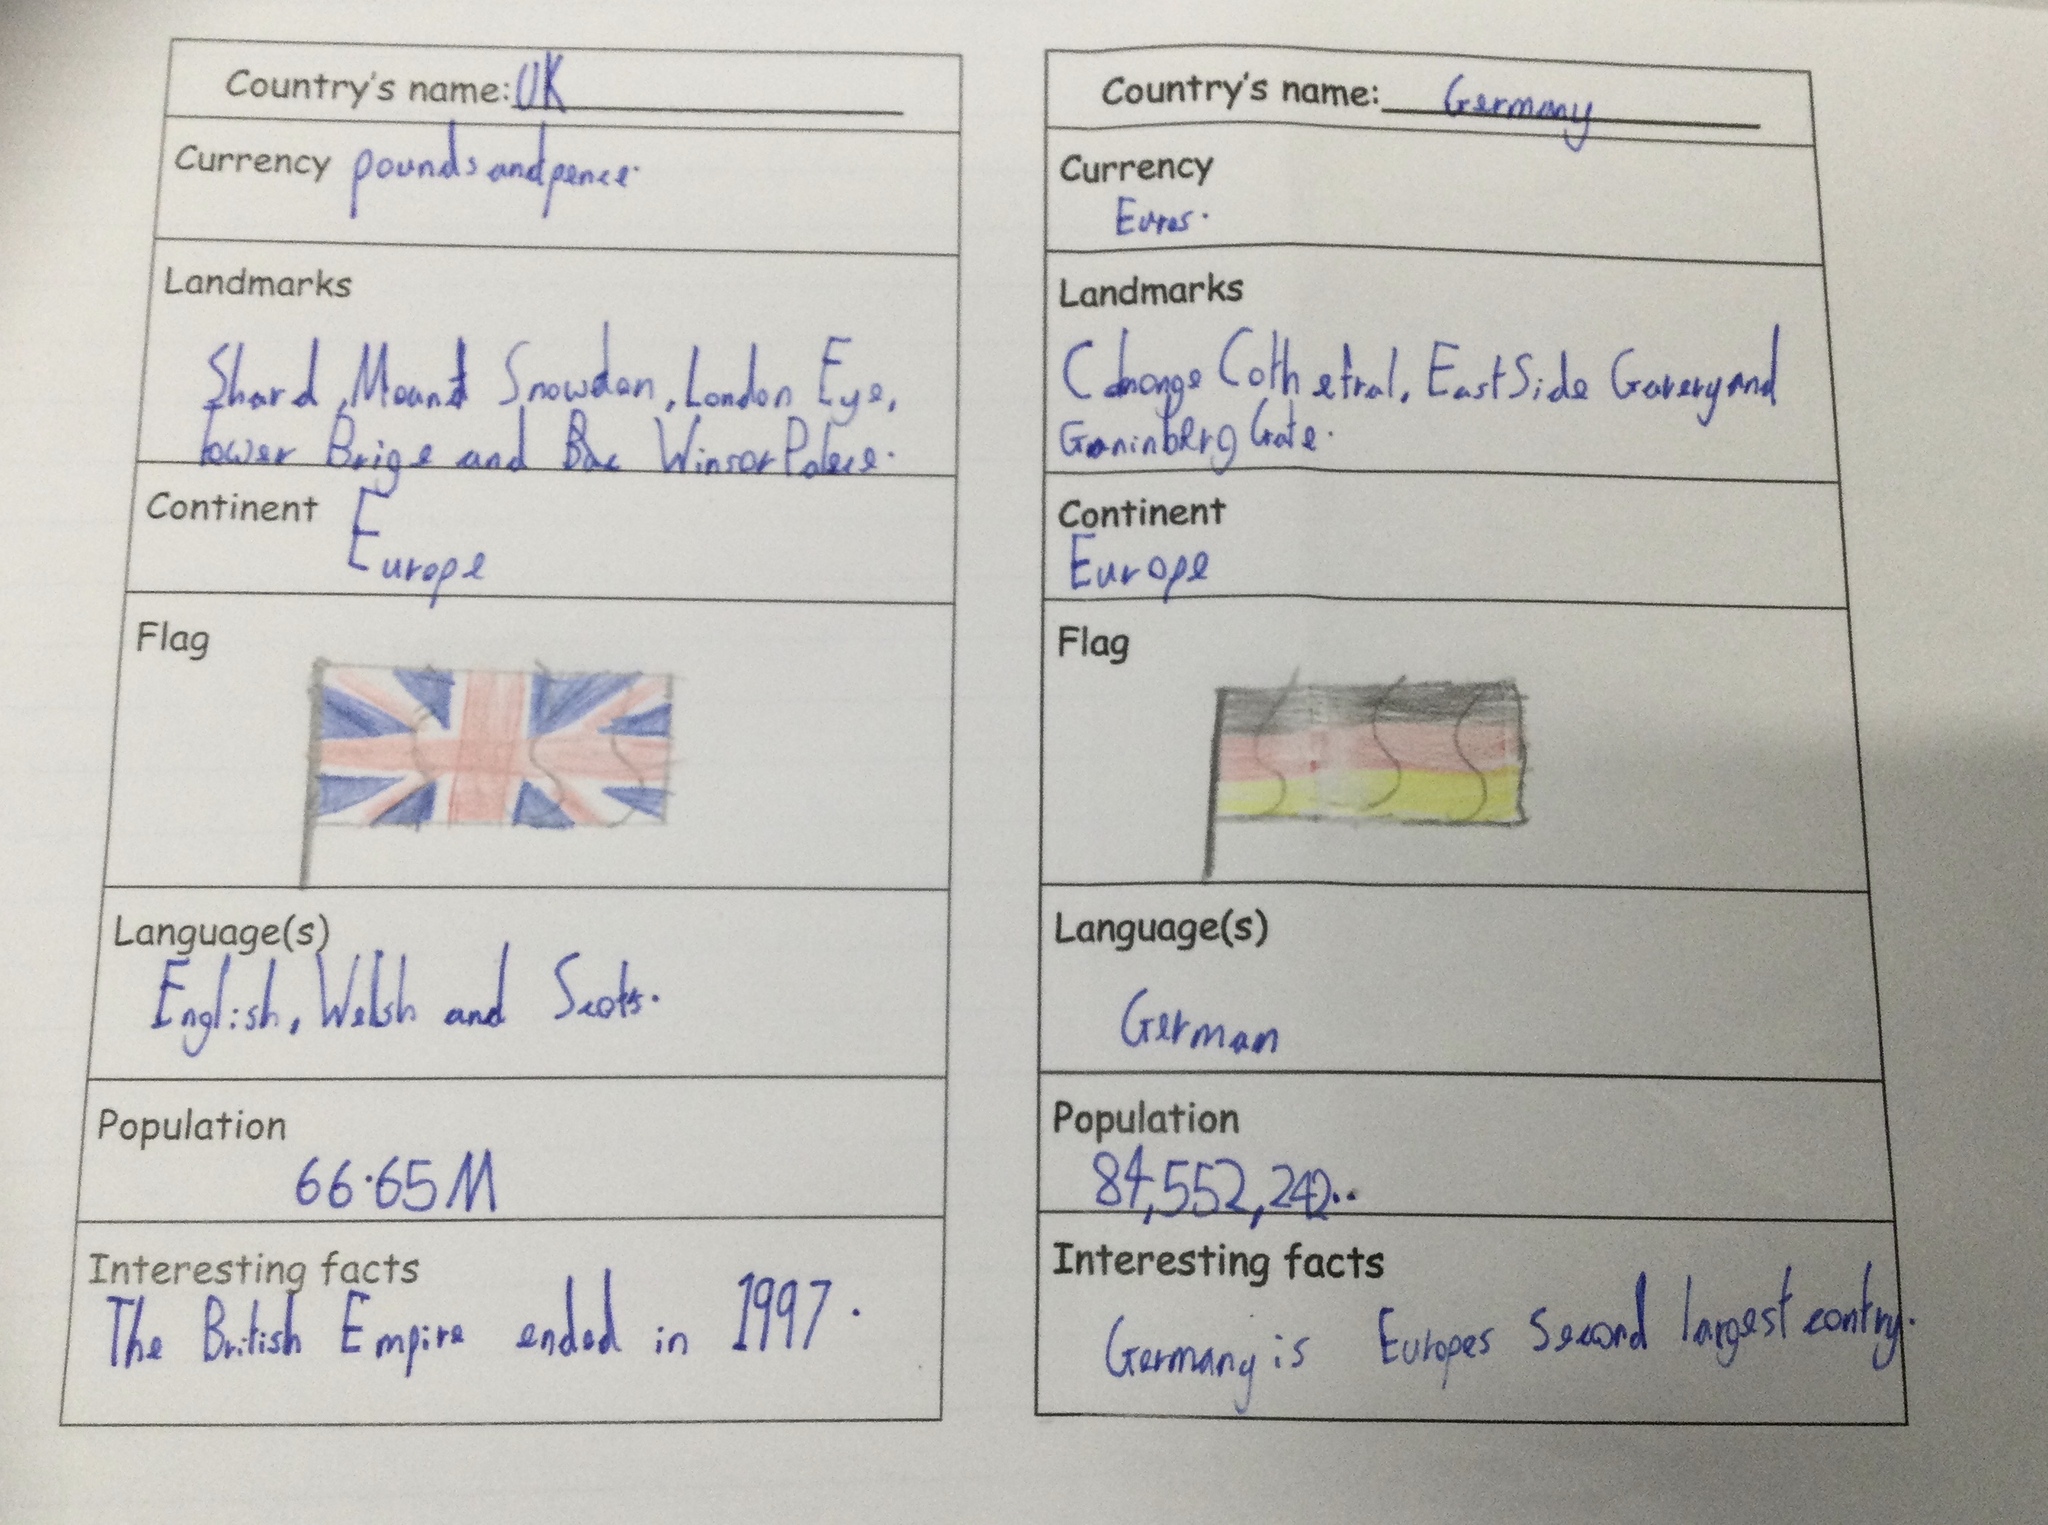 Country's name: UK
Currency pounds and pence.
Landmarks
Shard, Mount Snowdon, London Eye,
tower Brige and Winsor Palace.
Continent Europe
Flag
Language(s)
English, Welsh and Scots.
Population
66.65M
Interesting facts
The British Empire ended in 1997.
Country's name: Germany
Currency
Euros.
Landmarks
Cothetral, East Side Gavery and
Gate.
Continent
Europe
Flag
Language(s)
German
Population
84,552,242..
Interesting facts
Germany is Europes Second largest contry.